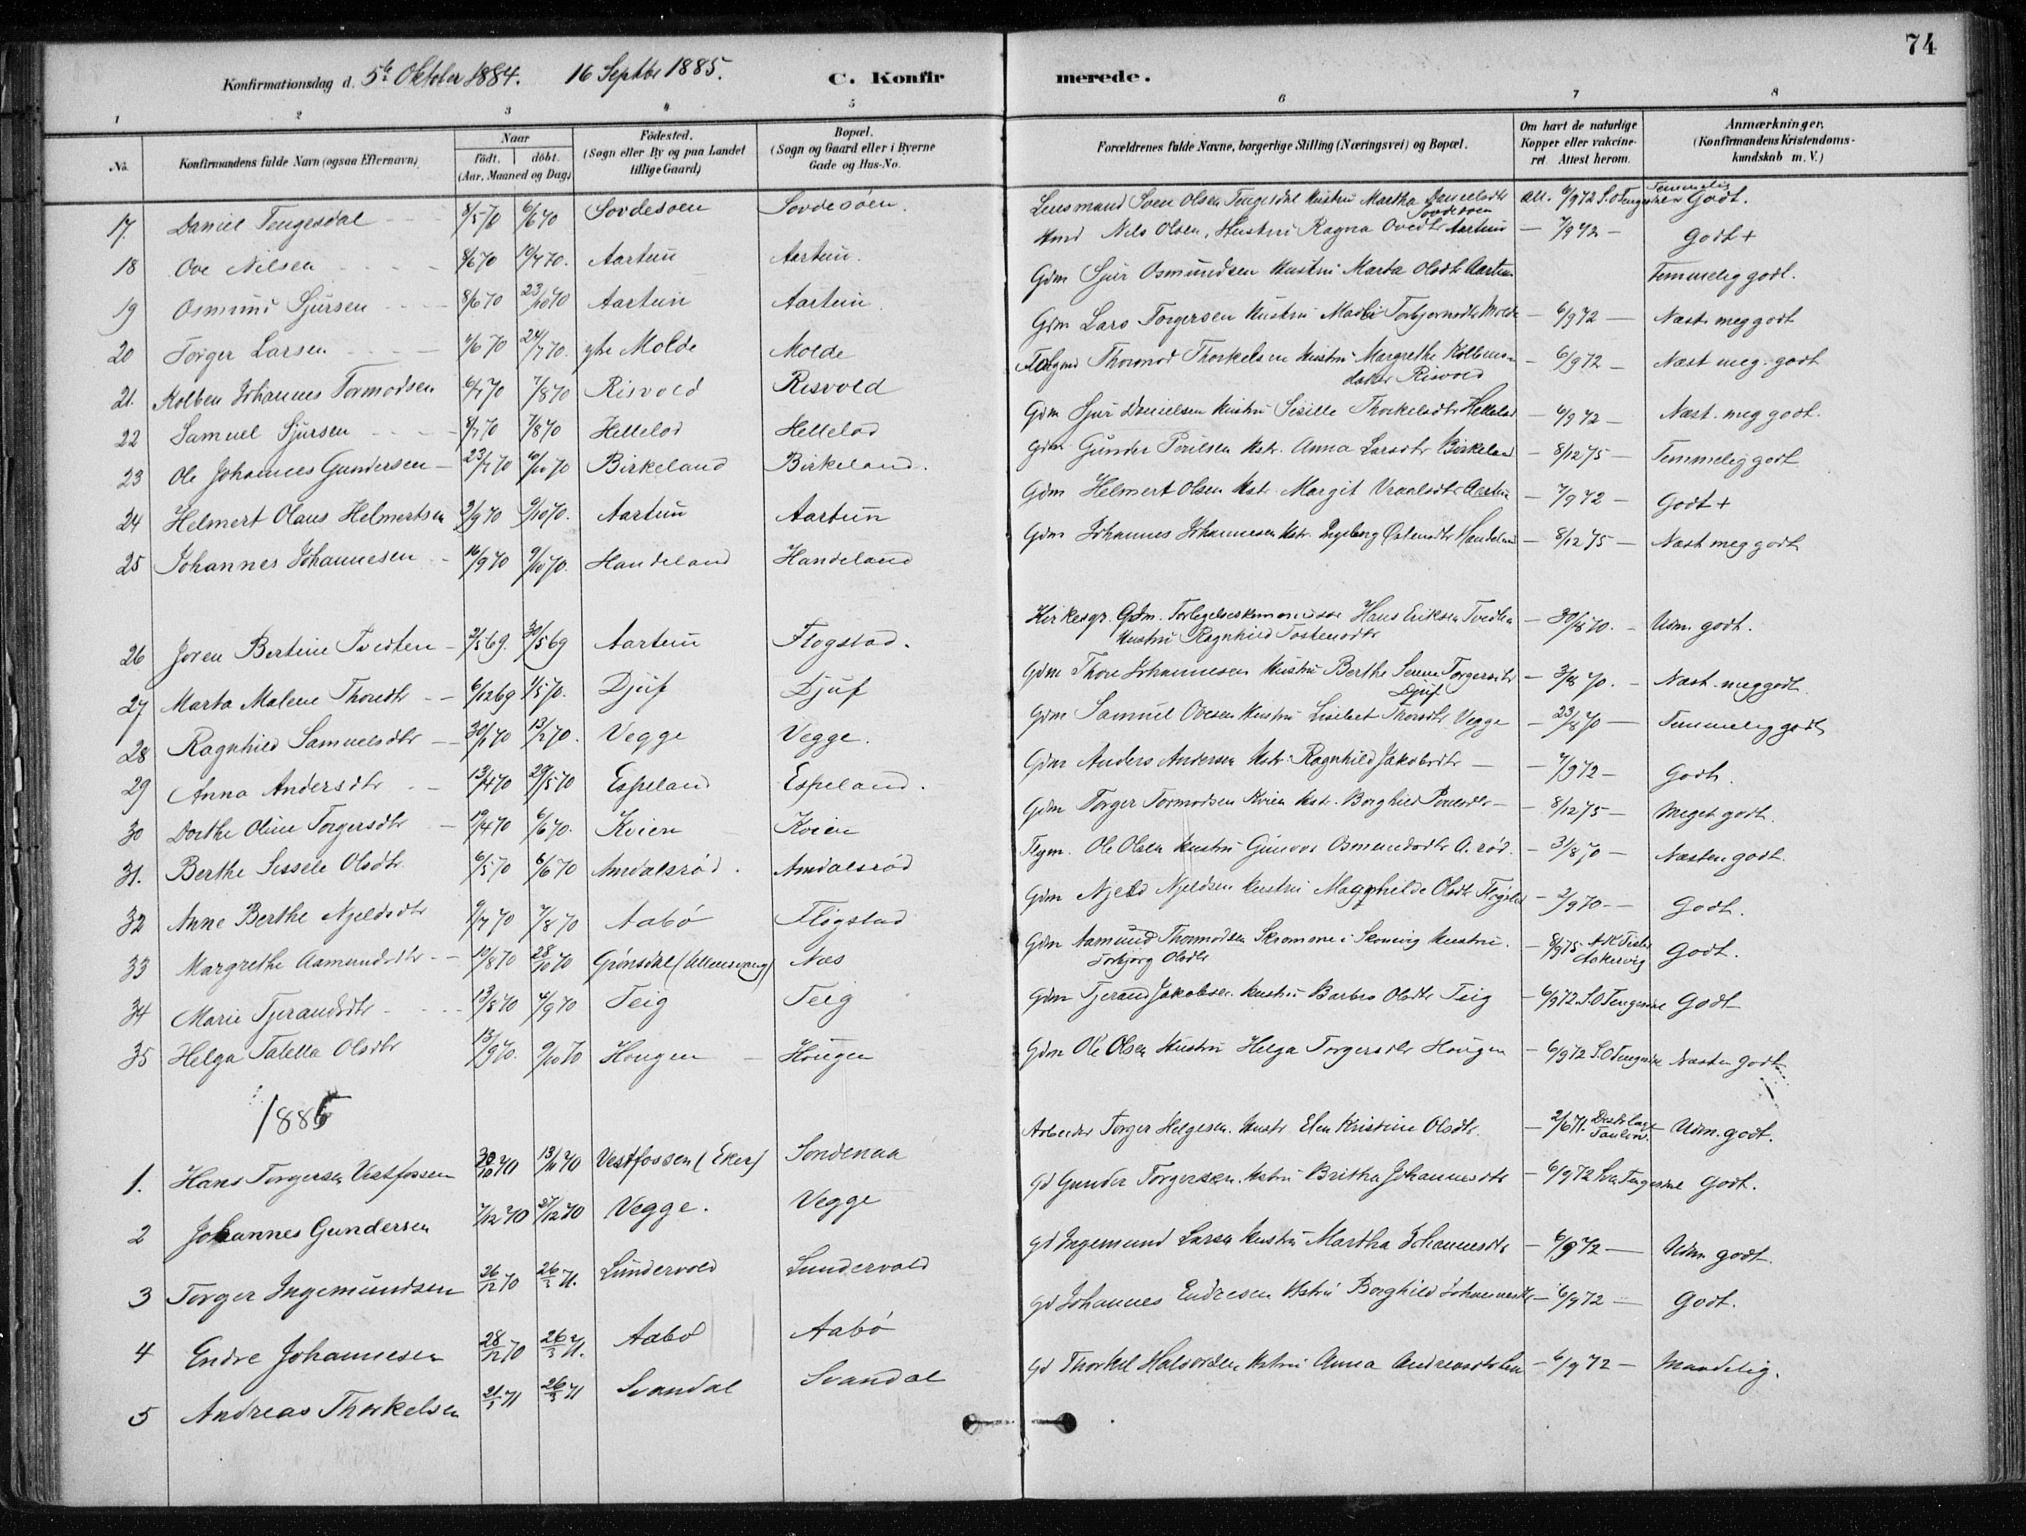 74
Konfirmationsdag d. 5te Oktober 1884. 16 Septbr 1885. C. Konfirmerede.
1 2 3 4 5 6 7 8
No. Konfirmandens fulde Navn (ogsaa Efternavn) Naar født. døbt. (Aar, Maaned og Dag) Fødested. (Sogn eller By og paa Landet tillige Gaard) Bopæl. (Sogn og Gaard eller i Byerne Gade og Hus-No. Forældrenes fulde Navne, borgerlige Stilling (Næringsvei) og Bopæl. Om havt de naturlige Kopper eller vakcineret. Attest herom. Anmærkninger. (Konfirmandens Kristendomskundskab m. V.)
17. Daniel Tengesdal 8/5 70 6/6 70 Sovdesøen Sovdesøen. Lensmand Sven Olsen Tengesdal Hustru Martha Danielsdtr Sovdesøen Att. 6/9 72 S. O Tengesdal Temmelig Godt.
18 Ove Nilsen 8/6 70 10/7 70. Aartun Aartun. Hmd Nils Olsen, Hustru Ragna Ovedtr Aartun — 7/9 72 — Godt +
19 Osmund Sjursen 8/6 70 23/10 70 Aartun Aartun Gdm Sjur Osmundsen Hustru Marta Olsdtr Aartun Temmelig godt.
20 Torger Larsen 4/6 70 24/7 70. ytre Molde Molde Gdm Lars Torgersen Hustru Torbjørnsdtr Molde — 6/9 72 — Næst. meg godt
21. Kolben Johannes Tormodsen 6/7 70 7/8 70 Risvold Risvold Thormod Thorkelsen Hustru Margrethe Kolbensdatter Risvold — 6/9 72 — Næst meg. godt
22 Samuel Sjursen 8/7 70 7/8 70 Hellelod Hellelod Gdm Sjur Danielsen Hustru Sisille Thorkelsdtr Hellelod — 6/9 72 — Næst. meg godt.
23 Ole Johannes Gundersen 23/7 70 9/10 70 Birkeland Birkeland. Gdm Gunder Poulsen Hstr. Anna Larsdtr Birkeland — 8/12 75 — Temmelig godt
24 Helmert Olaus Helmertsen 2/9 70 9/10 70. Aartun Aartun Gdm Helmert Olsen Hstr. Margit Aartun — 7/9 72 — Godt +
25 Johannes Johannesen 16/9 70 9/10 70. Handeland Handeland Gdm Johannes Johannesen Hstr. Ingeborg Østensdtr Handeland — 8/12 75 — Næst meg godt
26 Joren Bertine Tvedten 2/5 69. 30/5 69 Aartun Flogstad. Kirkesgr. Gdm. Forlegelseskommissær Hans Eriksen Tvedten Hustru Ragnhild Tostensdtr — 30/8 70. — Udm. godt.
27 Marta Malene Thoredtr 6/12 69 1/5 70. Djuf Djuf Gdm Thore Johannesen Hustru Berthe Serine Torgersdtr Djuf — 3/8 70. — Næst. meg godt.
28 Ragnhild Samuelsdtr 30/1 70 13/2 70. Vegge Vegge. Gdm Samuel Ovesen Hustru Lisebet Thorsdtr Vegge — 23/8 70 — Temmelig godt
29 Anna Andersdtr 13/4 70 29/5 70 Espeland Espeland. Gdm Anders Andersen Hstr. Ragnhild Jakobsdtr — 7/9 72 — Godt.
30 Dorthe Oline Torgersdtr 19/4 70 6/6 70. Kvien Kvien Gdm Torger Tormodsen Kvien Hstr. Borghild Poulsdtr — 8/12 75 — Meget godt.
31. Berthe Sessele Olsdtr. 6/5 70 6/6 70 Amdalsrød. Amdalsrød Ole Olsen Hustru Gunvor Osmundsdtr A. rød. — 31/8 70 — Næsten godt.
32 Anne Berthe Njeldsdtr 9/7 70 7/8 70 Aabø Fløgstad Gdm Njeld Njeldsen Hustru Magnhilde Olsdtr Fløgstad — 2/9 70 — Godt.
33 Margrethe Aamundsdtr 10/8 70 28/10 70 Grønsdal (Ullensvang) Næs Gdm Aamund Thormodsen Skromme i Skonevig Hustru Torbjørg Olsdtr — 8/9 75 Aakervig Godt.
34 Marie Tjerandsdtr 13/8 70 4/9 70 Teig Teig Gdm Tjerand Jakobsen Hustru Barbro Olsdtr Teig — 6/9 72 S. O Tengesdal Godt
35 Helga Taletta Olsdtr 13/9 70. 9/10 70 Hougen Hougen Gdm Ole Olsen Hustru Helga Torgersdtr Hougen — 6/9 72 S. O Tengesdal Næsten godt
1885
1. Hans Torgersen Vestfossen 30/10 70 13/11 70 Vestfossen (Eker) Søndenaa Arbeider Torger Helgesen. Hustr Elen Kristine Olsdtr. — 2/6 71. Udm. godt.
2 Johannes Gundersen 7/12 70 27/12 70 Vegge. Vegge Gd Gunder Torgersen. Hstru Britha Johannesdtr — 6/9 72 Godt.
3 Torger Ingemundsen 26/12 70 26/2 71. Lundervold Lundervold Gd Ingemund Larsen Hustru Martha Johannesdtr — 6/9 72 — Udm godt.
4 Endre Johannesen 28/12 70 26/3 71. Aabø Aabø Gd Johannes Endresen Hstru Borghild Johannesdtr — 6/9 72 — Godt.
5 Andreas Thorkelsen 21/1 71 26/3 71 Svandal Svandal Gd Thorkel Halvorsen Hstru Anna — 6/9 72 — Maadelig.